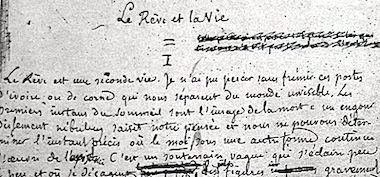 Le Rêve et la Vie
I
Le Rêve est une seconde vie. Je n'ai pu percer sans frémir ces portes
d'ivoire ou de corne qui nous séparent du monde invisible. Les
premiers instans du sommeil sont l'image de la mort : un engour
dissement nébuleux saisit notre pensée et nous ne pouvons déter
miner l'instant précis où le moi, sous une autre forme continue
l'œuvre de C'est un souterrain vague qui s'éclaire peu
à peu et où se dégagent des figures gravement